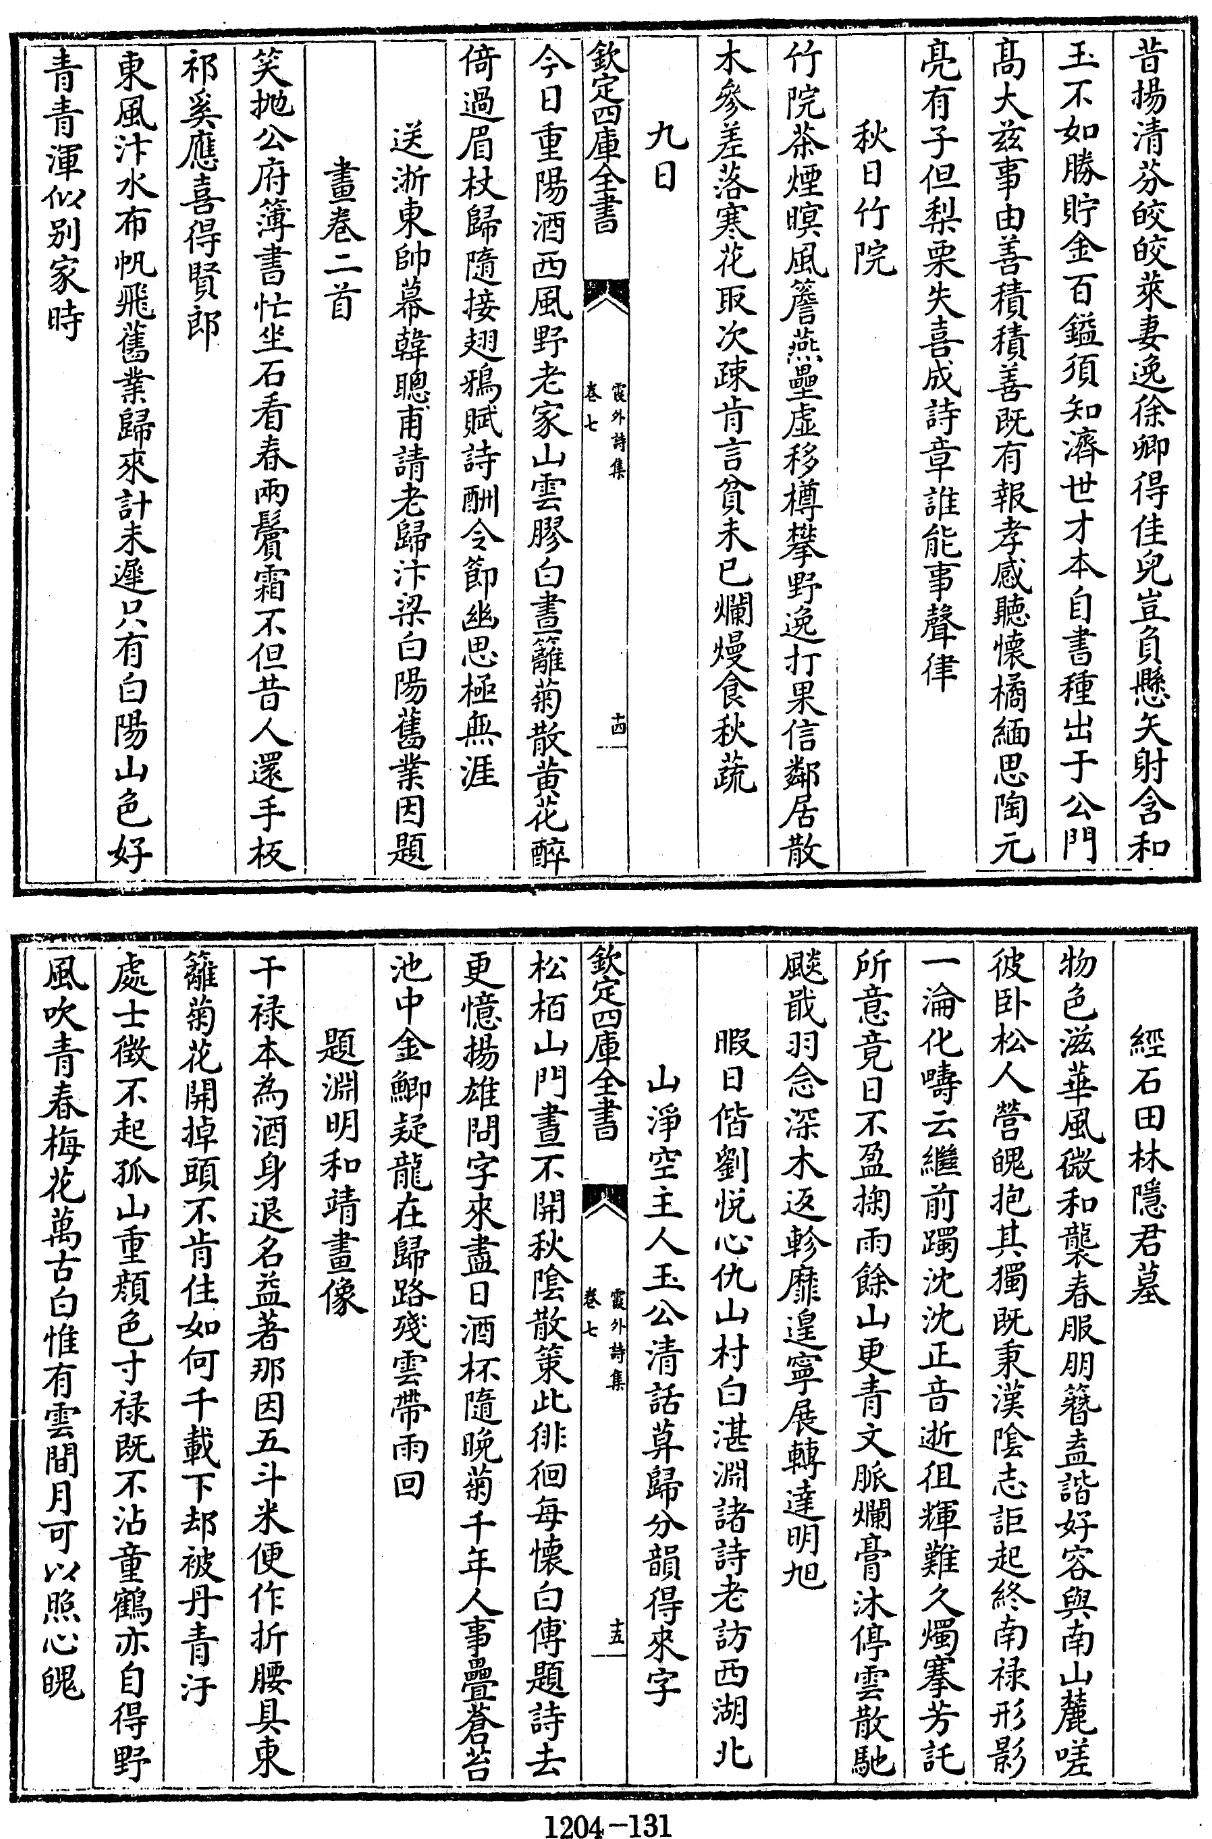 昔揚清芬皎皎萊妻逸徐卿得佳兒豈負懸矢射含和
玉不如勝貯金百鎰須知濟世才本自書種出于公門
髙大兹事由善積積善既有報孝感聽懐橘緬思陶元
亮有子但梨栗失喜成詩章誰能事聲律
秋日竹院
竹院茶煙暝風簷燕壘虚移樽攀野逸打果信鄰居散
木參差落寒花取次疎肯言貧未已爛熳食秋蔬
九日
欽定四庫全書
霞外詩集
卷七
十四
今日重陽酒西風野老家山雲膠白晝籬菊散黄花醉
倚過眉杖歸隨接翅鴉賦詩酬令節幽思極無涯
送浙東帥幕韓聰甫請老歸汴梁白陽舊業因題
畫卷二首
笑抛公府簿書忙坐石看春兩鬢霜不但昔人還手板
祁奚應喜得賢郎
東風汴水布帆飛舊業歸來計未遲只有白陽山色好
青青渾似别家時
經石田林隱君墓
物色滋華風微和襲春服朋簪盍諧好容與南山麓嗟
彼卧松人營魄抱其獨既秉漢陰志詎起終南禄形影
一淪化疇云繼前躅沈沈正音逝徂輝難久燭搴芳託
所意竟日不盈掬雨餘山更青文脈爛膏沐停雲散馳
飈戢羽念深木返軫靡遑寧展轉達明旭
暇日偕劉悦心仇山村白湛淵諸詩老訪西湖北
山淨空主人玉公清話草歸分韻得來字
欽定四庫全書
霞外詩集
卷七
十五
松栢山門晝不開秋陰散策此徘徊每懐白傅題詩去
更憶揚雄問字來盡日酒杯隨晚菊千年人事疊蒼苔
池中金鯽疑龍在歸路殘雲帶雨回
題淵明和靖畫像
干禄本為酒身退名益著那因五斗米便作折腰具東
籬菊花開掉頭不肯住如何千載下却被丹青汙
處士徵不起孤山重顔色寸禄既不沾童鶴亦自得野
風吹青春梅花萬古白惟有雲間月可以照心魄
1204-131